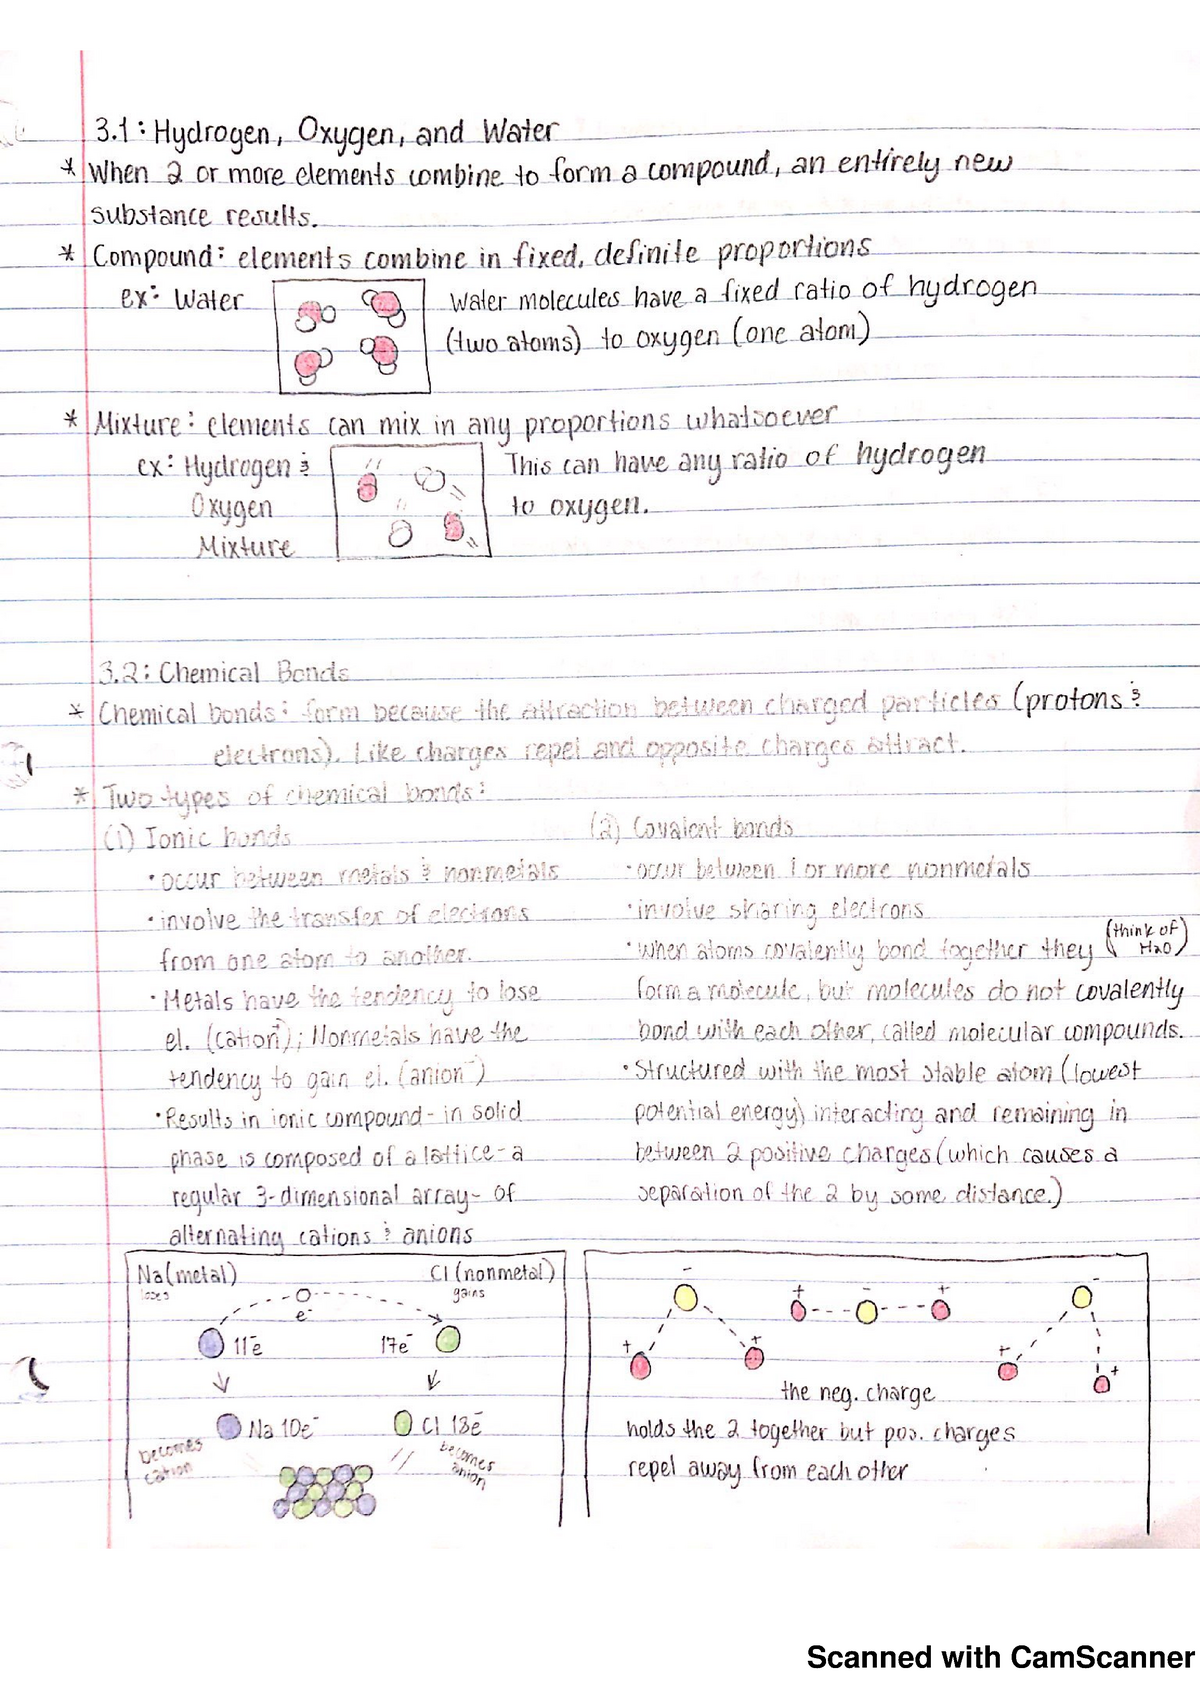 3.1: Hydrogen, Oxygen, and Water
* When 2 or more elements combine to form a compound, an entirely new
substance results.
* Compound: elements combine in fixed, definite proportions
ex: Water
Water molecules have a fixed ratio of hydrogen
(two atoms) to oxygen (one atom)
* Mixture: elements can mix in any proportions whatsoever
ex: Hydrogen &
Oxygen
Mixture
This can have any ratio of hydrogen
to oxygen.
3.2: Chemical Bonds
* Chemical bonds: form because the attraction between charged particles (protons &
electrons). Like charges repel and opposite charges attract.
* Two types of chemical bonds:
(1) Ionic bonds
• occur between metals & nonmetals
• involve the transfer of electrons
from one atom to another.
• Metals have the tendency to lose
el. (cation⁺); Nonmetals have the
tendency to gain el. (anion⁻)
• Results in ionic compound - in solid
phase is composed of a lattice - a
regular 3-dimensional array - of
alternating cations & anions
(2) Covalent bonds
• occur between 1 or more nonmetals
• involve sharing electrons
• when atoms covalently bond together they (think of
H2O)
form a molecule, but molecules do not covalently
bond with each other, called molecular compounds.
• Structured with the most stable atom (lowest
potential energy) interacting and remaining in
between 2 positive charges (which causes a
separation of the 2 by some distance.)
Na (metal)
loses
Cl (nonmetal)
gains
e⁻
11e⁻
17e⁻
Na 10e⁻
Cl 18e⁻
becomes
cation
becomes
anion
-
+
+
+ - +
-
+
+
the neg. charge
holds the 2 together but pos. charges
repel away from each other
Scanned with CamScanner